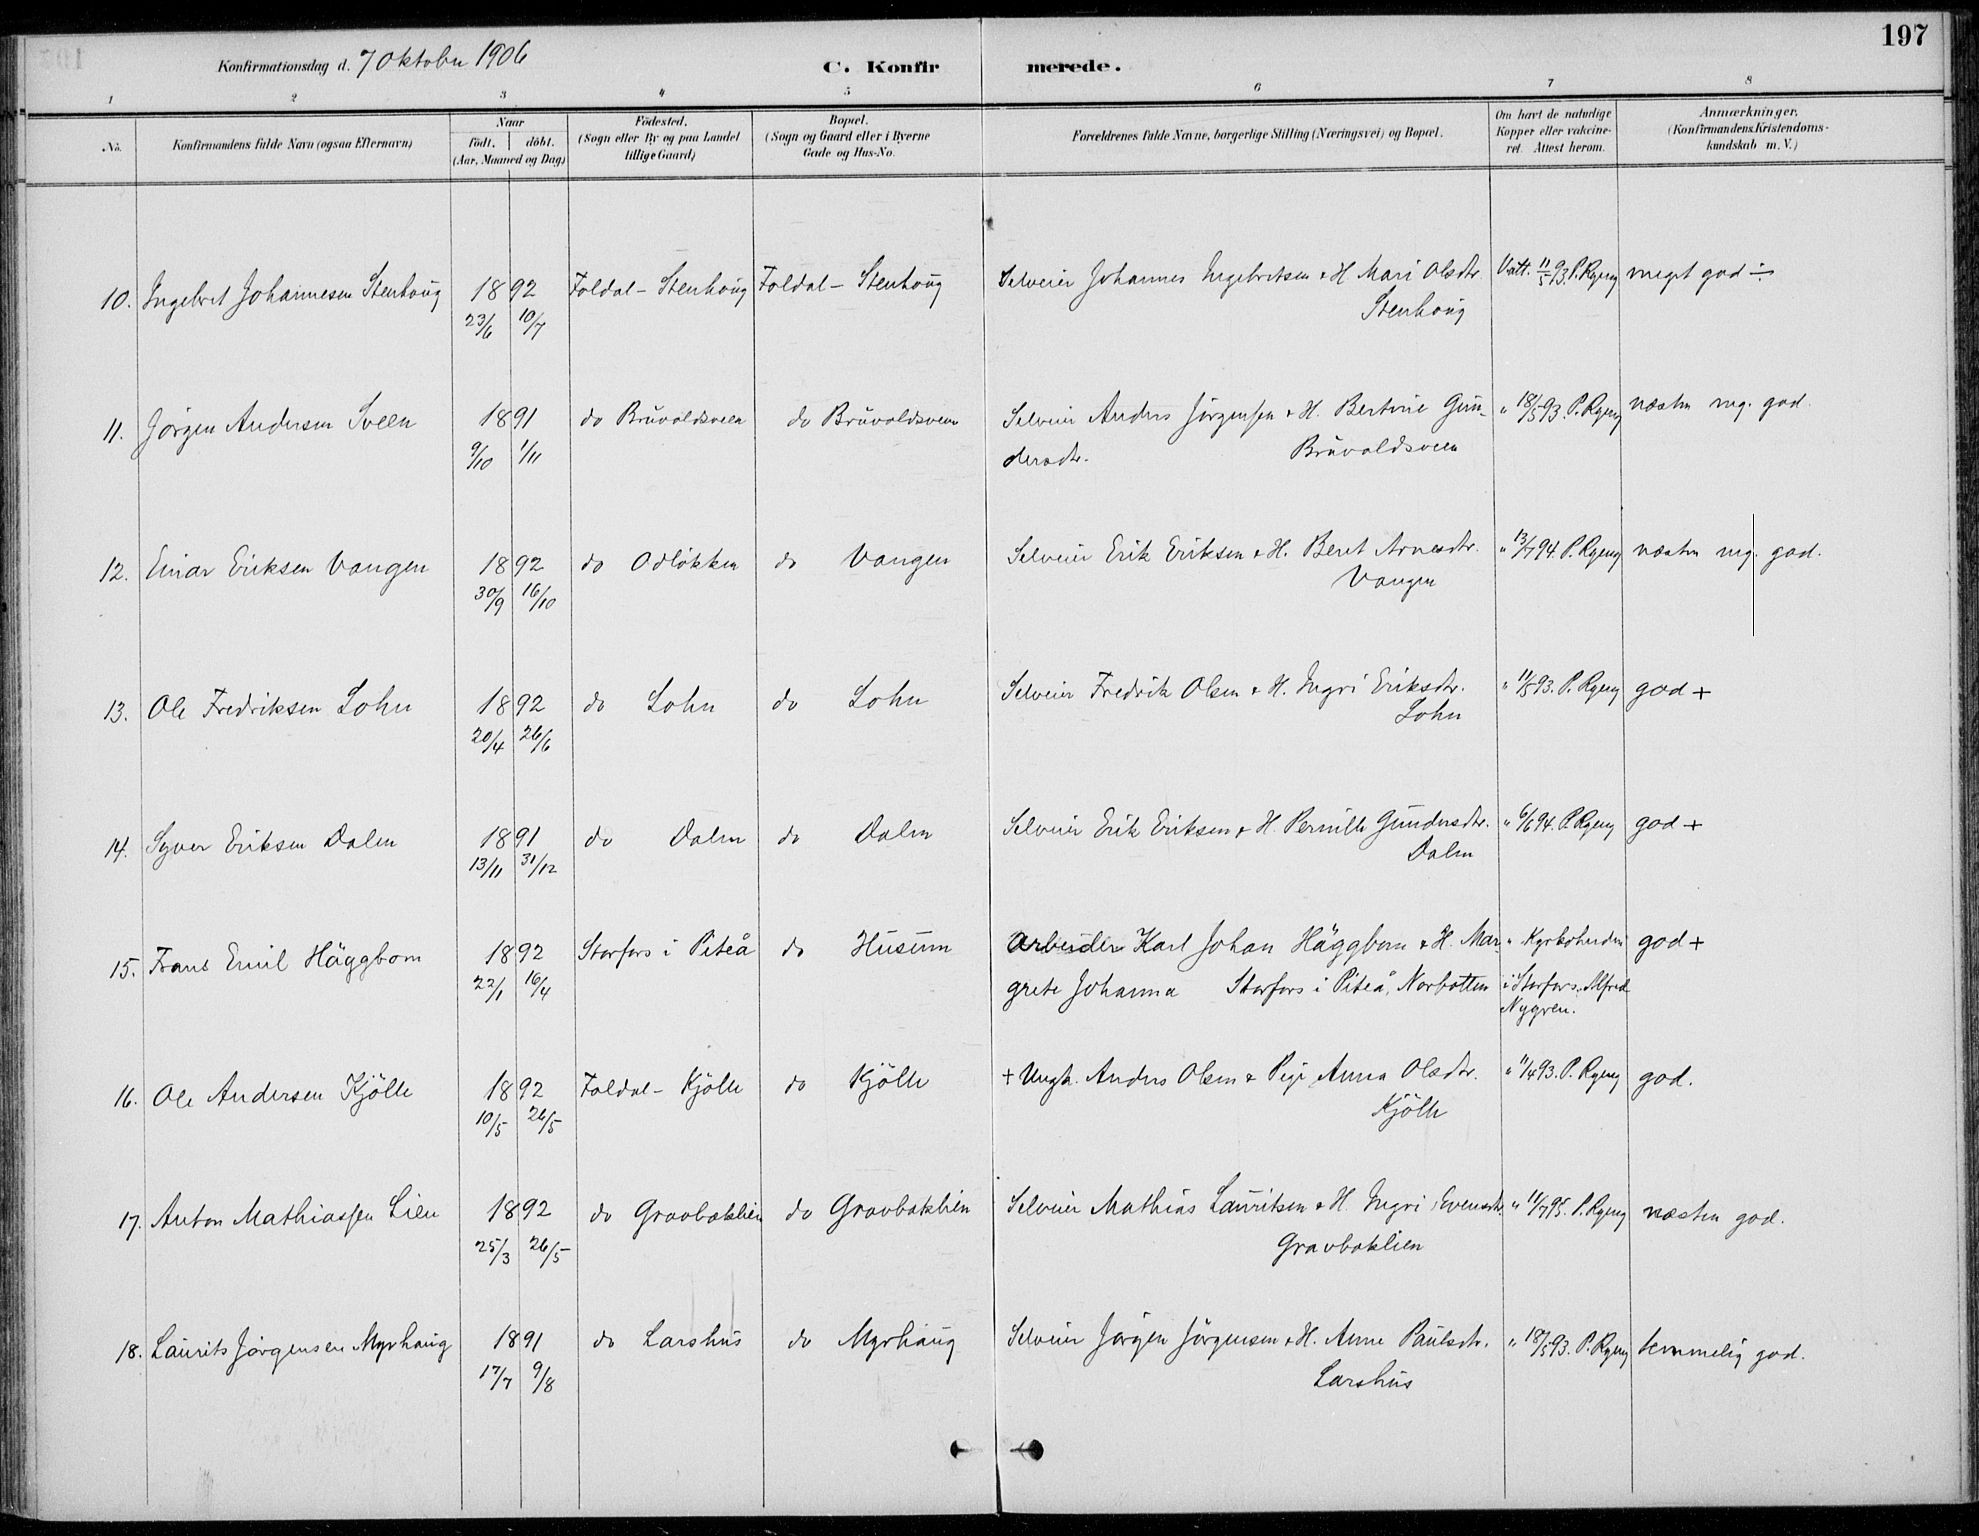 197
Konfirmationsdag d. 7 Oktober 1906 C. Konfirmerede.
1 2 3 4 5 6 7 8
No. Konfirmandens fulde Navn (ogsaa Efternavn) Naar födt. döbt. (Aar, Maaned og Dag) Födested. (Sogn eller By og paa Landet tillige Gaard) Bopæl. (Sogn og Gaard eller i Byerne Gade og Hus-No. Forældrenes fulde Navne, borgerlige Stilling (Næringsvei) og Bopæl. Om havt de naturlige Kopper eller vakcineret. Attest herom. Anmærkninger. (Konfirmandens Kristendomskundskab m. V.)
10. Ingebret Johannesen Stenhoug 1892 Foldal - Stenhoug Foldal - Stenhoug Selveier Johannes Ingebretsen & H. Mari Olsdtr. Vatt. 11/5 93. P. Ryeng meget god ÷
23/6 10/7 Stenhoug
11. Jörgen Andersen Sveen 1891 do Bruvoldsveen do Bruvoldsveen Selveier Anders Jörgensen & H. Bertine Gun- " 18/5 93. P. Ryeng næsten mg. god.
9/10 1/11 dersdtr. Bruvoldsveen
12. Einar Eriksen Vangen 1892 do Odlökken do Vangen Selveier Erik Eriksen & H. Beret Arnesdtr. " 13/7 94. P. Ryeng næsten mg. god.
30/9 16/10 Vangen
13. Ole Fredriksen Lohn 1892 do Lohn do Lohn Selveier Fredrik Olsen & H. Ingri Eriksdtr. " 11/5 93. P. Ryeng god +
20/4 26/6 Lohn
14. Syver Eriksen Dalen 1891 do Dalen do Dalen Selveier Erik Eriksen & H. Pernille Gundersdtr. " 6/6 94. P. Ryeng god +
13/11 31/12 Dalen
15. Frans Emil Häggbom 1892 Storfors i Piteå do Husum Arbeider Karl Johan Häggbom & H. Mar- " Kyrkoherden god +
22/1 16/4 grete Johanna Storfors i Piteå, Norbotten i Storfors. Alfred
Nygren.
16. Ole Andersen Kjölle 1892 Foldal - Kjölle do Kjölle + Ungk. Anders Olsen & Pige Anna Olsdtr. " 11/4 93. P. Ryeng god.
10/5 26/5 Kjölle
17. Anton Mathiassen Lien 1892 do Gravbaklien do Gravbaklien Selveier Mathias Lauritsen & H. Ingri Evensdtr. " 11/7 95. P. Ryeng næsten god.
25/3 26/5 Gravbaklien
18. Laurits Jörgensen Myrhaug 1891 do Larshus do Myrhaug Selveier Jörgen Jörgensen & H. Anne Paulsdtr. " 18/5 93. P. Ryeng temmelig god.
17/7 9/8 Larshus